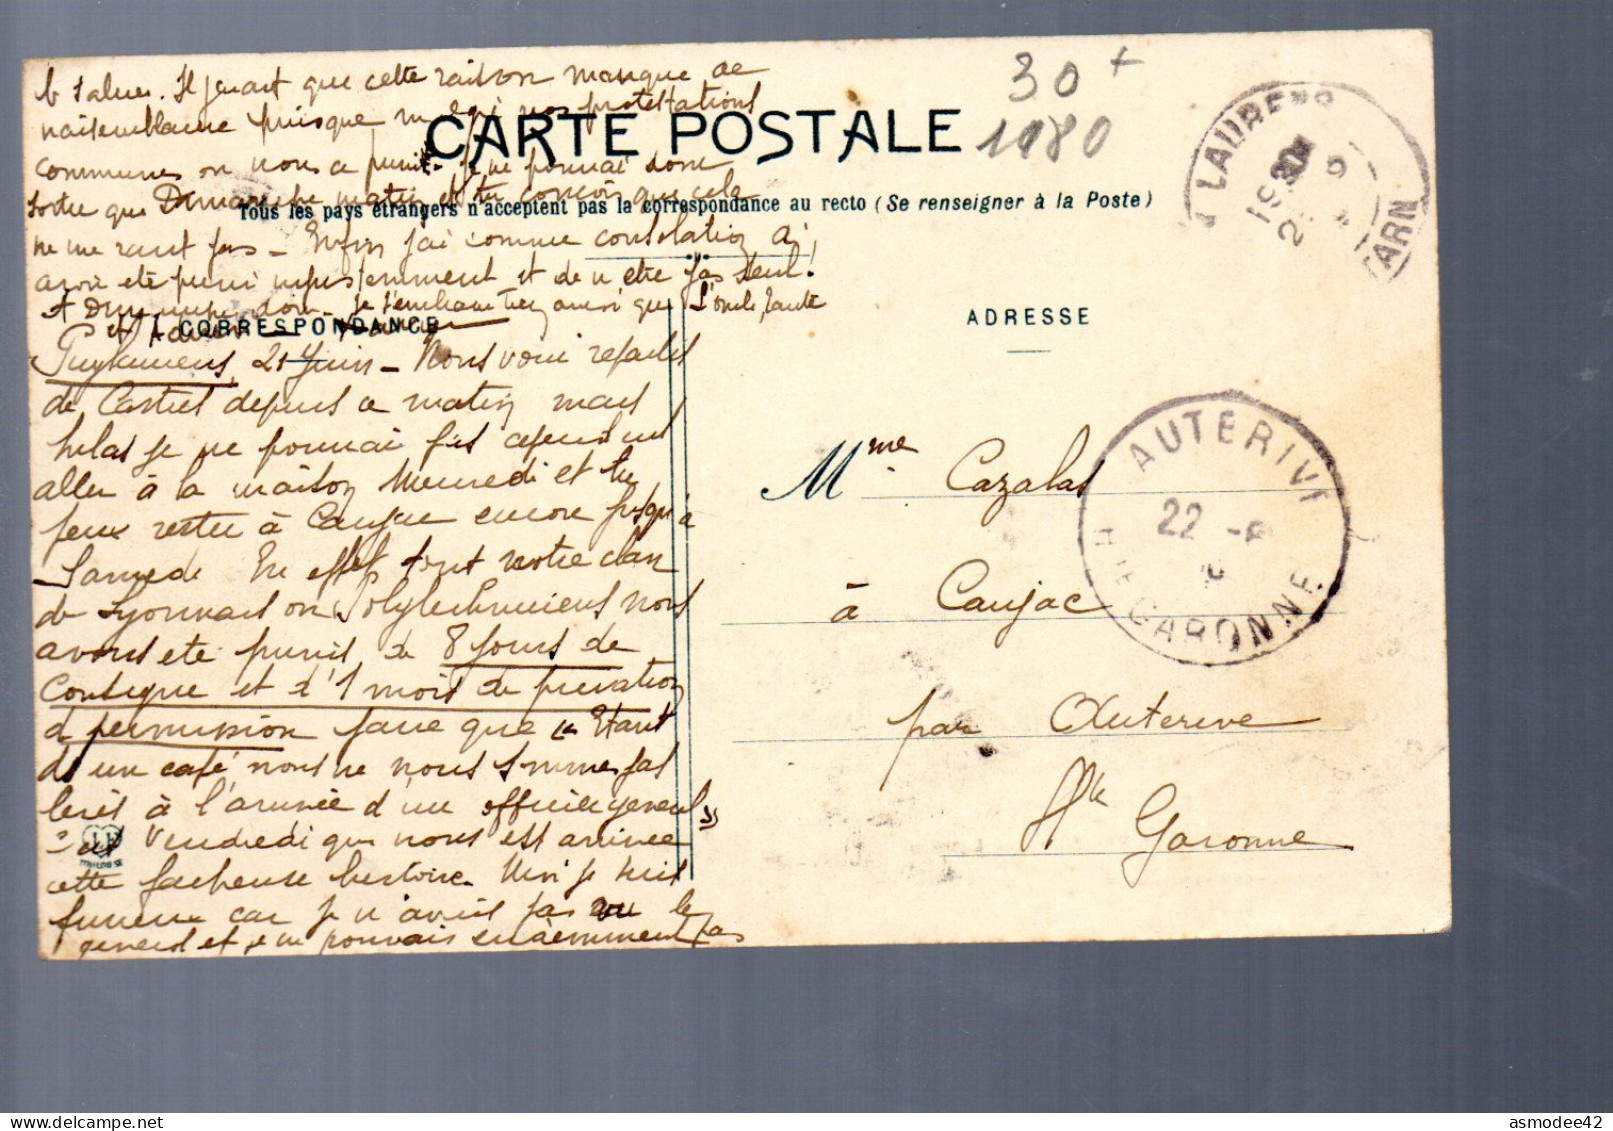 30+
1080
LAURENS
TARN
CARTE POSTALE
Tous les pays étrangers n'acceptent pas la correspondance au recto (Se renseigner à la Poste)
CORRESPONDANCE
ADRESSE
21 Juin - Nous voici
de depuis ce matin mais
helas je ne pourrai pas
aller à la maison Mercredi et tu
peux rester à Caujac encore jusqu'à
Samedi En effet tout notre clan
de Lyonnais on Polytechniciens nous
avons ete punis de 8 jours de
Consigne et d'1 mois de privation
d permission parce que « Etant
ds un café nous ne nous sommes pas
levés à l'arrivée d'un officier general »
Vendredi que nous est arrivee
cette facheuse histoire. Moi je suis
furieux car je n'avais pas vu le
general et je ne pouvais evidemment pas
le saluer. Il parait que cette raison manque de
vraisemblance puisque nos protestations
communes on nous a punis. Je ne pourrai donc
sortir que Dimanche matin et tu conçois que cela
ne me ravit pas - Enfin j'ai comme consolation
avoir ete puni injustement et de n etre pas seul!
A Dimanche donc je t'embrasse ainsi que L'oncle, tante
Mme Cazalas
à Caujac
par Auterive
Hte Garonne
AUTERIVE
22 -6
HTE GARONNE
TOULOUSE
asmodee42